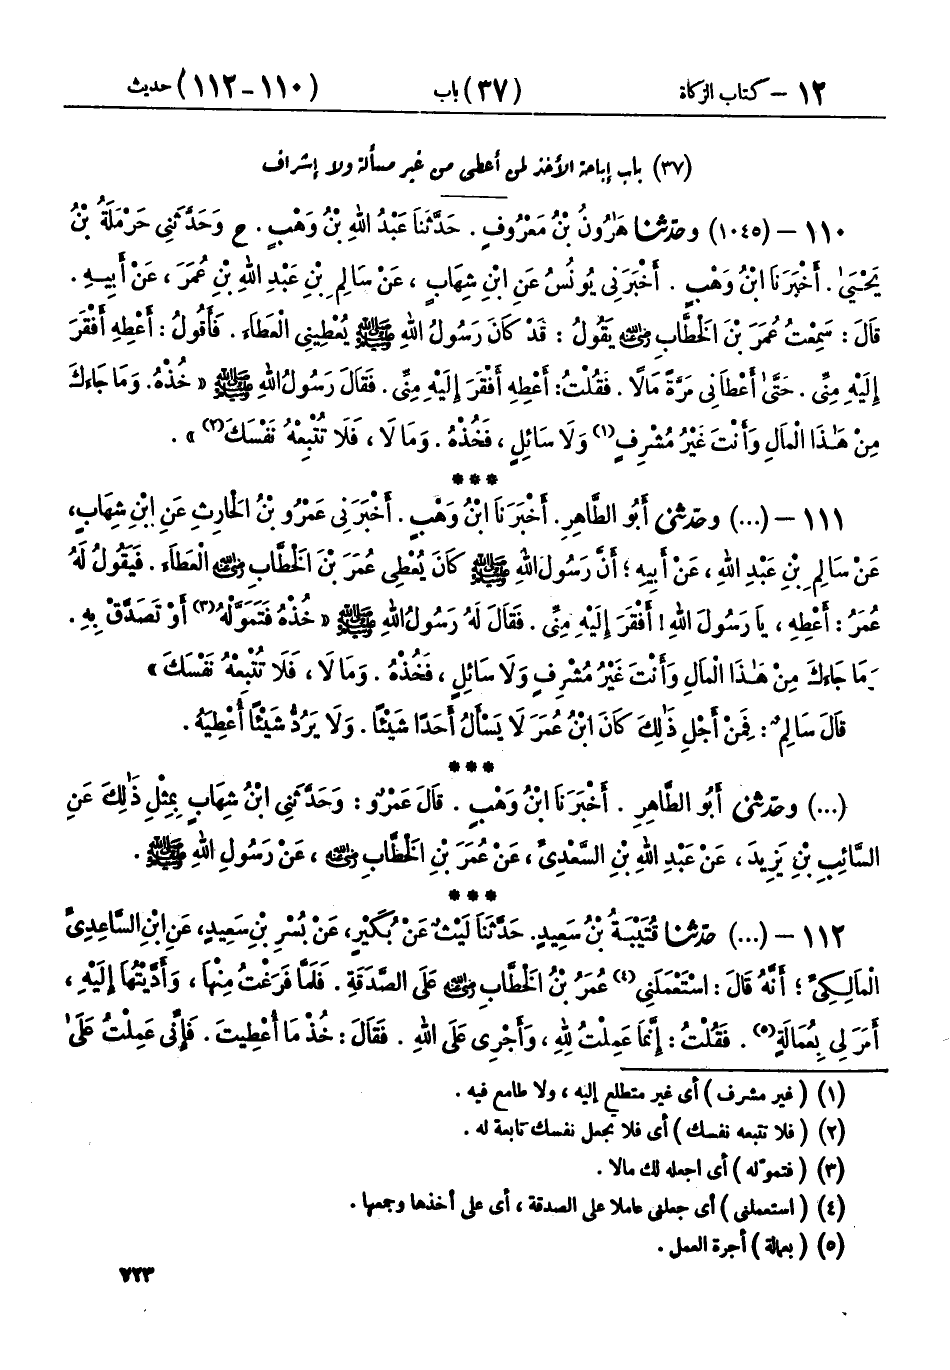 ١٢ – كتاب الزكاة (٣٧) باب (١١٠ – ١١٢) حديث
(٣٧) باب إباحة الأخذ لمن أعطى من غير مسألة ولا إشراف
١١٠ – (١٠٤٥) وحدثنا هَرُونُ بْنُ مَعْرُوفٍ . حَدَّثَنَا عَبْدُ اللهِ بْنُ وَهْبٍ . ح وَحَدَّثَنِي حَرْمَلَةُ بْنُ
يَحْيَىٰ . أَخْبَرَنَا ابْنُ وَهْبٍ . أَخْبَرَنِي يُونُسُ عَنِ ابْنِ شِهَابٍ ، عَنْ سَالِمِ بْنِ عَبْدِ اللهِ بْنِ عُمَرَ ، عَنْ أَبِيهِ .
قَالَ : سَمِعْتُ عُمَرَ بْنَ الْخَطَّابِ رضي الله عنه يَقُولُ : قَدْ كَانَ رَسُولُ اللهِ ﷺ يُعْطِينِي الْعَطَاءَ . فَأَقُولُ : أَعْطِهِ أَفْقَرَ
إِلَيْهِ مِنِّي . حَتَّىٰ أَعْطَانِي مَرَّةً مَالًا . فَقُلْتُ : أَعْطِهِ أَفْقَرَ إِلَيْهِ مِنِّي . فَقَالَ رَسُولُ اللهِ ﷺ « خُذْهُ . وَمَا جَاءَكَ
مِنْ هَٰذَا الْمَالِ وَأَنْتَ غَيْرُ مُشْرِفٍ(١) وَلَا سَائِلٍ ، فَخُذْهُ . وَمَا لَا ، فَلَا تُتْبِعْهُ نَفْسَكَ(٢) » .
***
١١١ – (...) وحدثنى أَبُو الطَّاهِرِ . أَخْبَرَنَا ابْنُ وَهْبٍ . أَخْبَرَنِي عَمْرُو بْنُ الْحَارِثِ عَنِ ابْنِ شِهَابٍ ،
عَنْ سَالِمِ بْنِ عَبْدِ اللهِ ، عَنْ أَبِيهِ ؛ أَنَّ رَسُولَ اللهِ ﷺ كَانَ يُعْطِي عُمَرَ بْنَ الْخَطَّابِ رضي الله عنه الْعَطَاءَ . فَيَقُولُ لَهُ
عُمَرُ : أَعْطِهِ ، يَا رَسُولَ اللهِ ! أَفْقَرَ إِلَيْهِ مِنِّي . فَقَالَ لَهُ رَسُولُ اللهِ ﷺ « خُذْهُ فَتَمَوَّلْهُ(٣) أَوْ تَصَدَّقْ بِهِ .
وَمَا جَاءَكَ مِنْ هَٰذَا الْمَالِ وَأَنْتَ غَيْرُ مُشْرِفٍ وَلَا سَائِلٍ ، فَخُذْهُ . وَمَا لَا ، فَلَا تُتْبِعْهُ نَفْسَكَ »
قَالَ سَالِمٌ : فَمِنْ أَجْلِ ذَٰلِكَ كَانَ ابْنُ عُمَرَ لَا يَسْأَلُ أَحَدًا شَيْئًا . وَلَا يَرُدُّ شَيْئًا أُعْطِيَهُ .
***
(...) وحدثنى أَبُو الطَّاهِرِ . أَخْبَرَنَا ابْنُ وَهْبٍ . قَالَ عَمْرٌو : وَحَدَّثَنِي ابْنُ شِهَابٍ بِمِثْلِ ذَٰلِكَ عَنِ
السَّائِبِ بْنِ يَزِيدَ ، عَنْ عَبْدِ اللهِ بْنِ السَّعْدِيِّ ، عَنْ عُمَرَ بْنِ الْخَطَّابِ رضي الله عنه ، عَنْ رَسُولِ اللهِ ﷺ .
***
١١٢ – (...) حدثنا قُتَيْبَةُ بْنُ سَعِيدٍ . حَدَّثَنَا لَيْثٌ عَنْ بُكَيْرٍ ، عَنْ بُسْرِ بْنِ سَعِيدٍ ، عَنِ ابْنِ السَّاعِدِيِّ
الْمَالِكِيِّ ؛ أَنَّهُ قَالَ : اسْتَعْمَلَنِي(٤) عُمَرُ بْنُ الْخَطَّابِ رضي الله عنه عَلَى الصَّدَقَةِ . فَلَمَّا فَرَغْتُ مِنْهَا ، وَأَدَّيْتُهَا إِلَيْهِ ،
أَمَرَ لِي بِعُمَالَةٍ(٥) . فَقُلْتُ : إِنَّمَا عَمِلْتُ لِلهِ ، وَأَجْرِي عَلَى اللهِ . فَقَالَ : خُذْ مَا أُعْطِيتَ . فَإِنِّي عَمِلْتُ عَلَىٰ
(١) ( غير مشرف ) أى غير متطلع إليه ، ولا طامع فيه .
(٢) ( فلا تتبعه نفسك ) أى فلا تجعل نفسك تابعة له .
(٣) ( فتموّله ) أى اجعله لك مالا .
(٤) ( استعملنى ) أى جعلنى عاملا على الصدقة ، أى على أخذها وجمعها .
(٥) ( بعمالة ) أجرة العمل .
٧٢٣